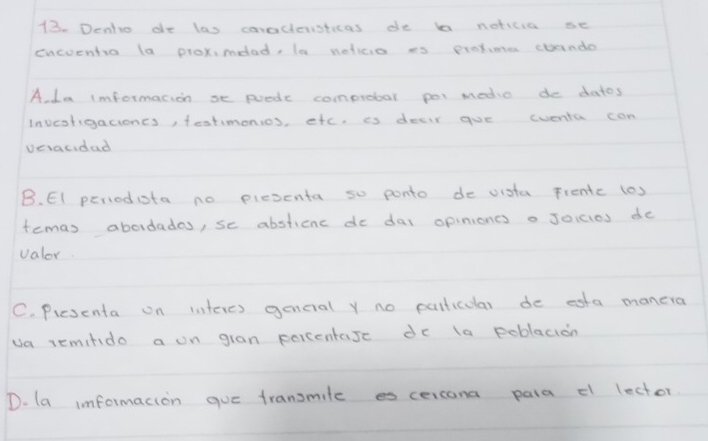 13. Dentro de las caracteristicas de la noticia se
encuentra la proximdad, la noticia es proxima cuando
A. La imformación se puede comprobar por medio de datos
investigaciones, testimonios, etc. es decir que cuenta con
veracidad
B. El periodista no presenta su punto de vista frente los
temas abordados, se abstiene de dar opiniones o joicios de
valor.
C. Presenta un interes general y no particular de esta manera
va remitido a un gran porcentaje de la poblacion
D. la imformación que transmite es cercana para el lector.